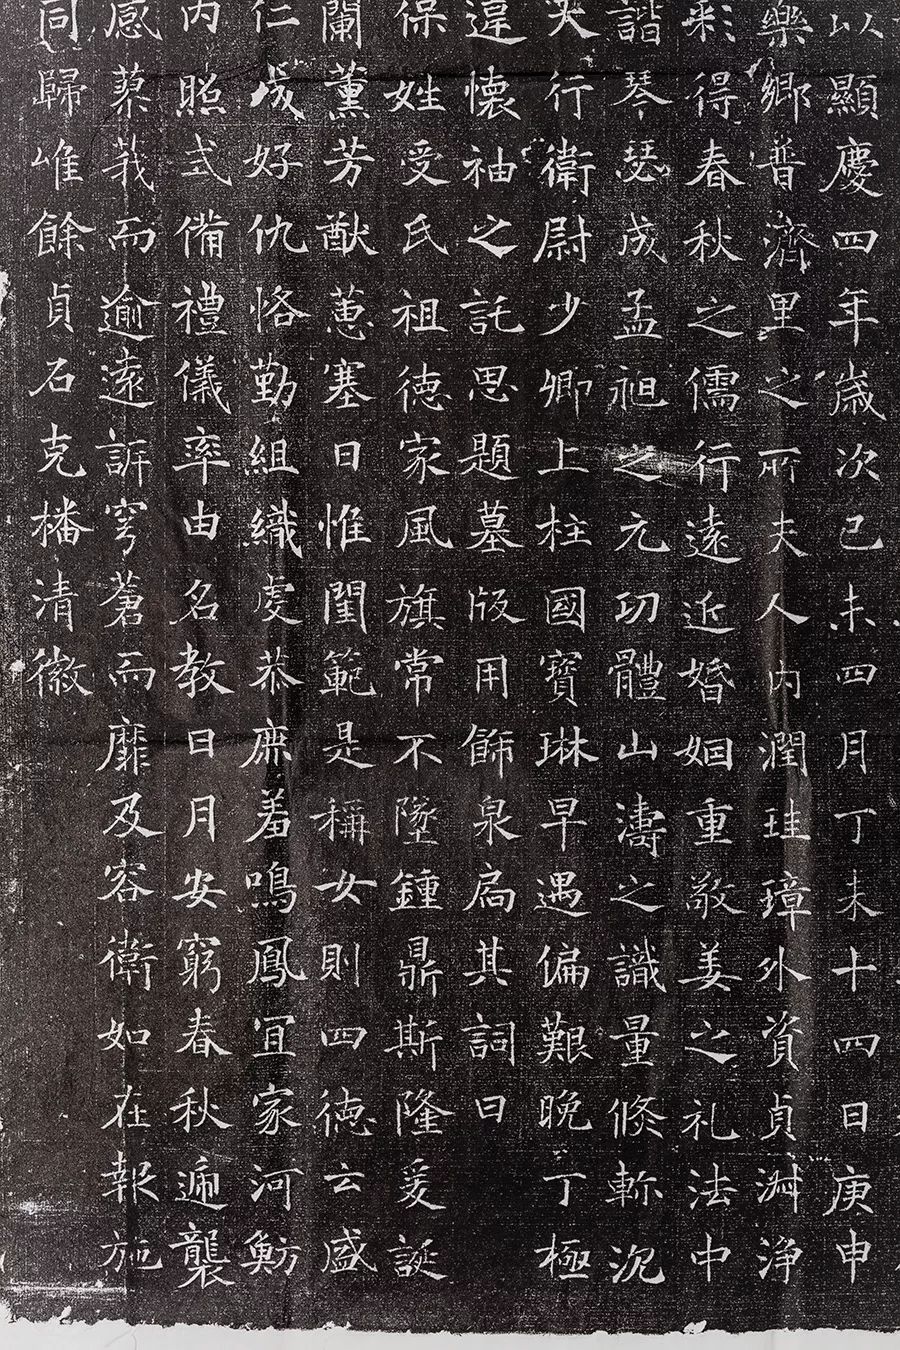 以顯慶四年歲次己未四月丁未十四日庚申
樂鄉普濟里之所夫人內潤珪璋外資貞淑淨
彩得春秋之儒行遠近婚姻重敬姜之礼法中
諧琴瑟成孟祂之元功體山濤之識量倏軫沉
天行衛尉少卿上柱國寶琳早遇偏艱晚丁極
違懷袖之託思題墓版用飾泉扃其詞曰
保姓受氏祖德家風旗常不墜鍾鼎斯隆爰誕
蘭薰芳猷蕙塞日惟閨範是稱女則四德云盛
仁成好仇恪勤組織虔恭庶羞鳴鳳宜家河魴
內照式備禮儀率由名教日月安窮春秋遞襲
感蓼莪而逾遠訴穹蒼而靡及容衛如在報施
同歸唯餘貞石克播清徽